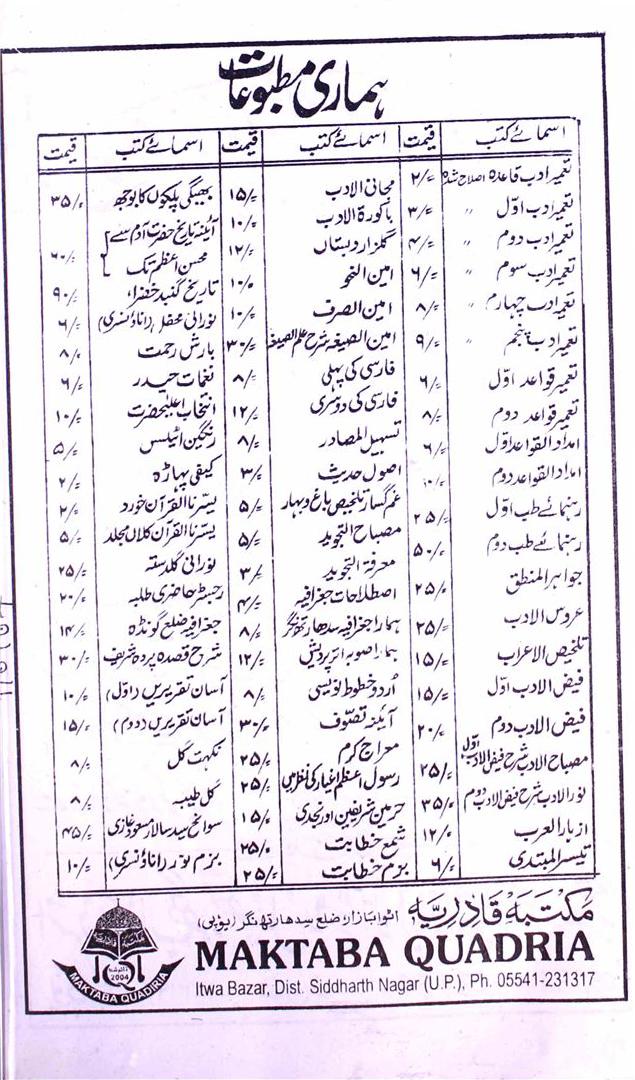 ہماری مطبوعات
اسمائے کتب قیمت اسمائے کتب قیمت اسمائے کتب قیمت
تعمیر ادب قاعدہ اصلاح شدہ ۲/=
تعمیر ادب اوّل 〃 ۳/=
تعمیر ادب دوم 〃 ۴/=
تعمیر ادب سوم 〃 ۶/=
تعمیر ادب چہارم 〃 ۸/=
تعمیر ادب پنجم 〃 ۹/=
تعمیر قواعد اوّل ۶/=
تعمیر قواعد دوم ۸/=
امداد القواعد اوّل ۶/=
امداد القواعد دوم ۱۰/=
رہنمائے طب اوّل ۲۵/=
رہنمائے طب دوم ۵۰/=
جواہر المنطق ۲۵/=
عروس الادب ۲۵/=
تلخیص الاعراب ۱۵/=
فیض الادب اوّل ۱۵/=
فیض الادب دوم ۲۰/=
مصباح الادب شرح فیض الادب اوّل ۲۵/=
نور الادب شرح فیض الادب دوم ۳۵/=
ازہار العرب ۱۲/=
تیسر المبتدی ۶/=
مجانی الادب ۱۵/=
باکورۃ الادب ۱۰/=
گلزار دبستاں ۱۲/=
امین النحو ۱۰/=
امین الصرف ۱۰/=
امین الصیغہ شرح علم الصیغہ ۳۰/=
فارسی کی پہلی ۸/=
فارسی کی دوسری ۱۲/=
تسہیل المصادر ۸/=
اصول حدیث ۳/=
غم گسار تلخیص باغ و بہار ۵/=
مصباح التجوید ۵/=
معرفۃ التجوید ۳/=
اصطلاحات جغرافیہ ۴/=
ہمارا جغرافیہ سدھارتھ نگر ۸/=
ہمارا صوبہ اتر پردیش ۱۲/=
اُردو خطوط نویسی ۸/=
آئینۂ تصوّف ۳۰/=
معراج کرم ۲۵/=
رسول اعظم اغیار کی نظر میں ۲۵/=
حرمین شریفین اور نجدی ۱۵/=
شمع خطابت ۲۵/=
بزم خطابت ۲۵/=
بھیگی پلکوں کا بوجھ ۳۵/=
آئینہ تاریخ حضرت آدم سے
محسن اعظم تک ۶۰/=
تاریخ گنبد خضراء ۹۰/=
نورانی محفل (اناؤنسری) ۶/=
بارش رحمت ۸/=
نغمات حیدر ۶/=
انتخاب اعلیٰحضرت ۱۰/=
رنگین اٹلس ۵/=
کیفی پہاڑہ ۲/=
یسّرنا القرآن خورد ۲/=
یسّرنا القرآن کلاں مجلد ۵/=
نورانی گلدستہ ۲۵/=
رجسٹر حاضری طلبہ ۲۰/=
جغرافیہ ضلع گونڈہ ۱۴/=
شرح قصدہ بردہ شریف ۳۰/=
آسان تقریریں (اول) ۱۰/=
آسان تقریریں (دوم) ۱۵/=
نکہت گل ۸/=
گل طیبہ ۸/=
سوانح سید سالار مسعود غازی ۴۵/=
بزم نور (اناؤنسری) ۱۰/=
مکتبہ قادریہ اٹوا بازار ضلع سدھارتھ نگر (یوپی)
MAKTABA QUADRIA
Itwa Bazar, Dist. Siddharth Nagar (U.P.), Ph. 05541-231317
مکتبہ قادریہ
2004
MAKTABA QUADIRIA